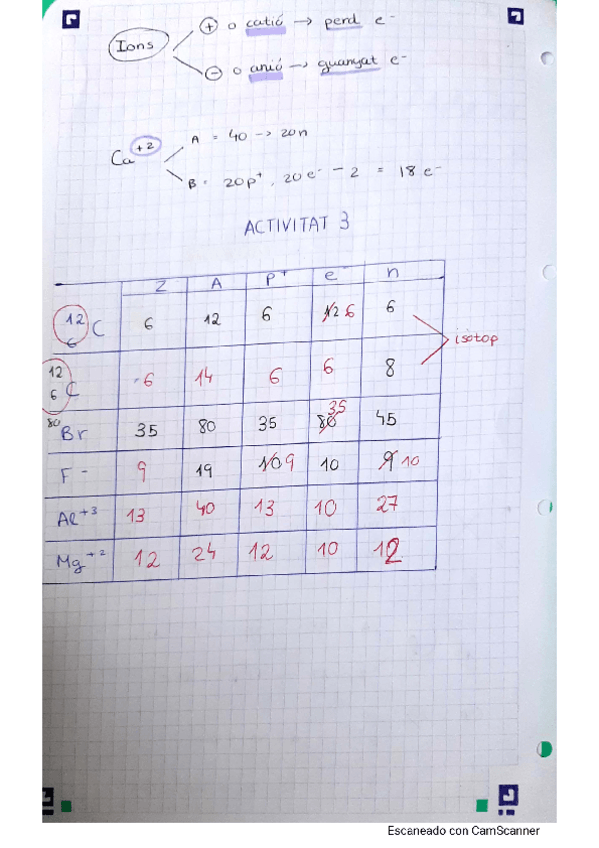 + o catió → perd e⁻
Ions
- o anió → guanyat e⁻
A = 40 → 20n
Ca⁺²
B = 20p⁺, 20e⁻ - 2 = 18 e⁻
ACTIVITAT 3
Z A p⁺ e⁻ n
12 6 C 6 12 6 12 6 6
isòtop
12 6 C 6 14 6 6 8
80 Br 35 80 35 80 35 45
F⁻ 9 19 10 9 10 9 10
Al⁺³ 13 40 13 10 27
Mg⁺² 12 24 12 10 12
Escaneado con CamScanner